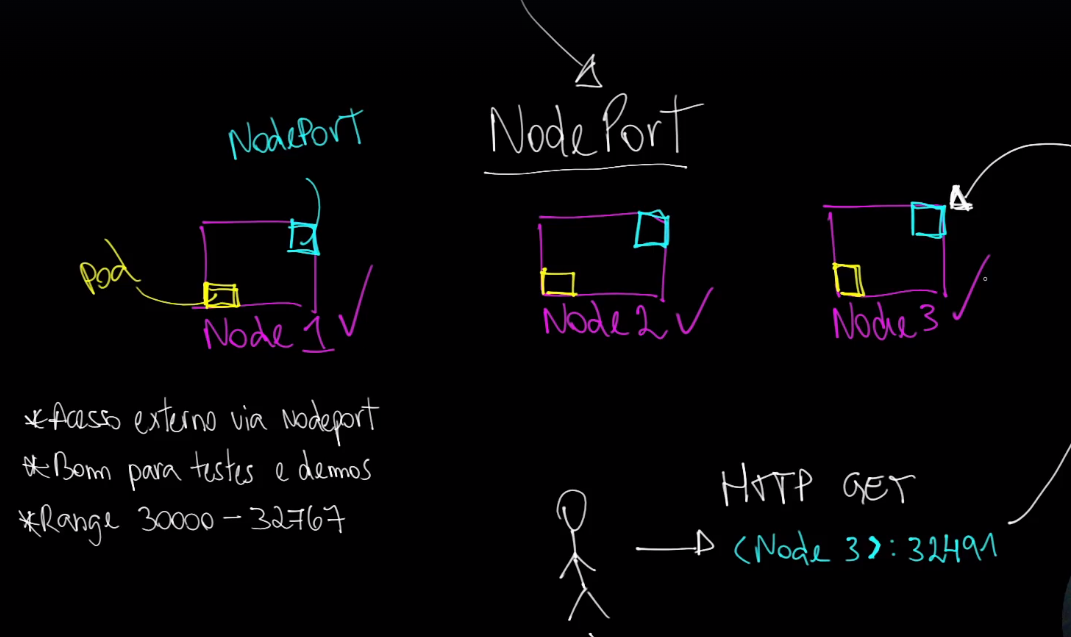 NodePort
NodePort
Pod
Node 1
Node 2
Node 3
*Acesso externo via Nodeport
*Bom para testes e demos
*Range 30000-32767
HTTP GET
(Node 3):32491